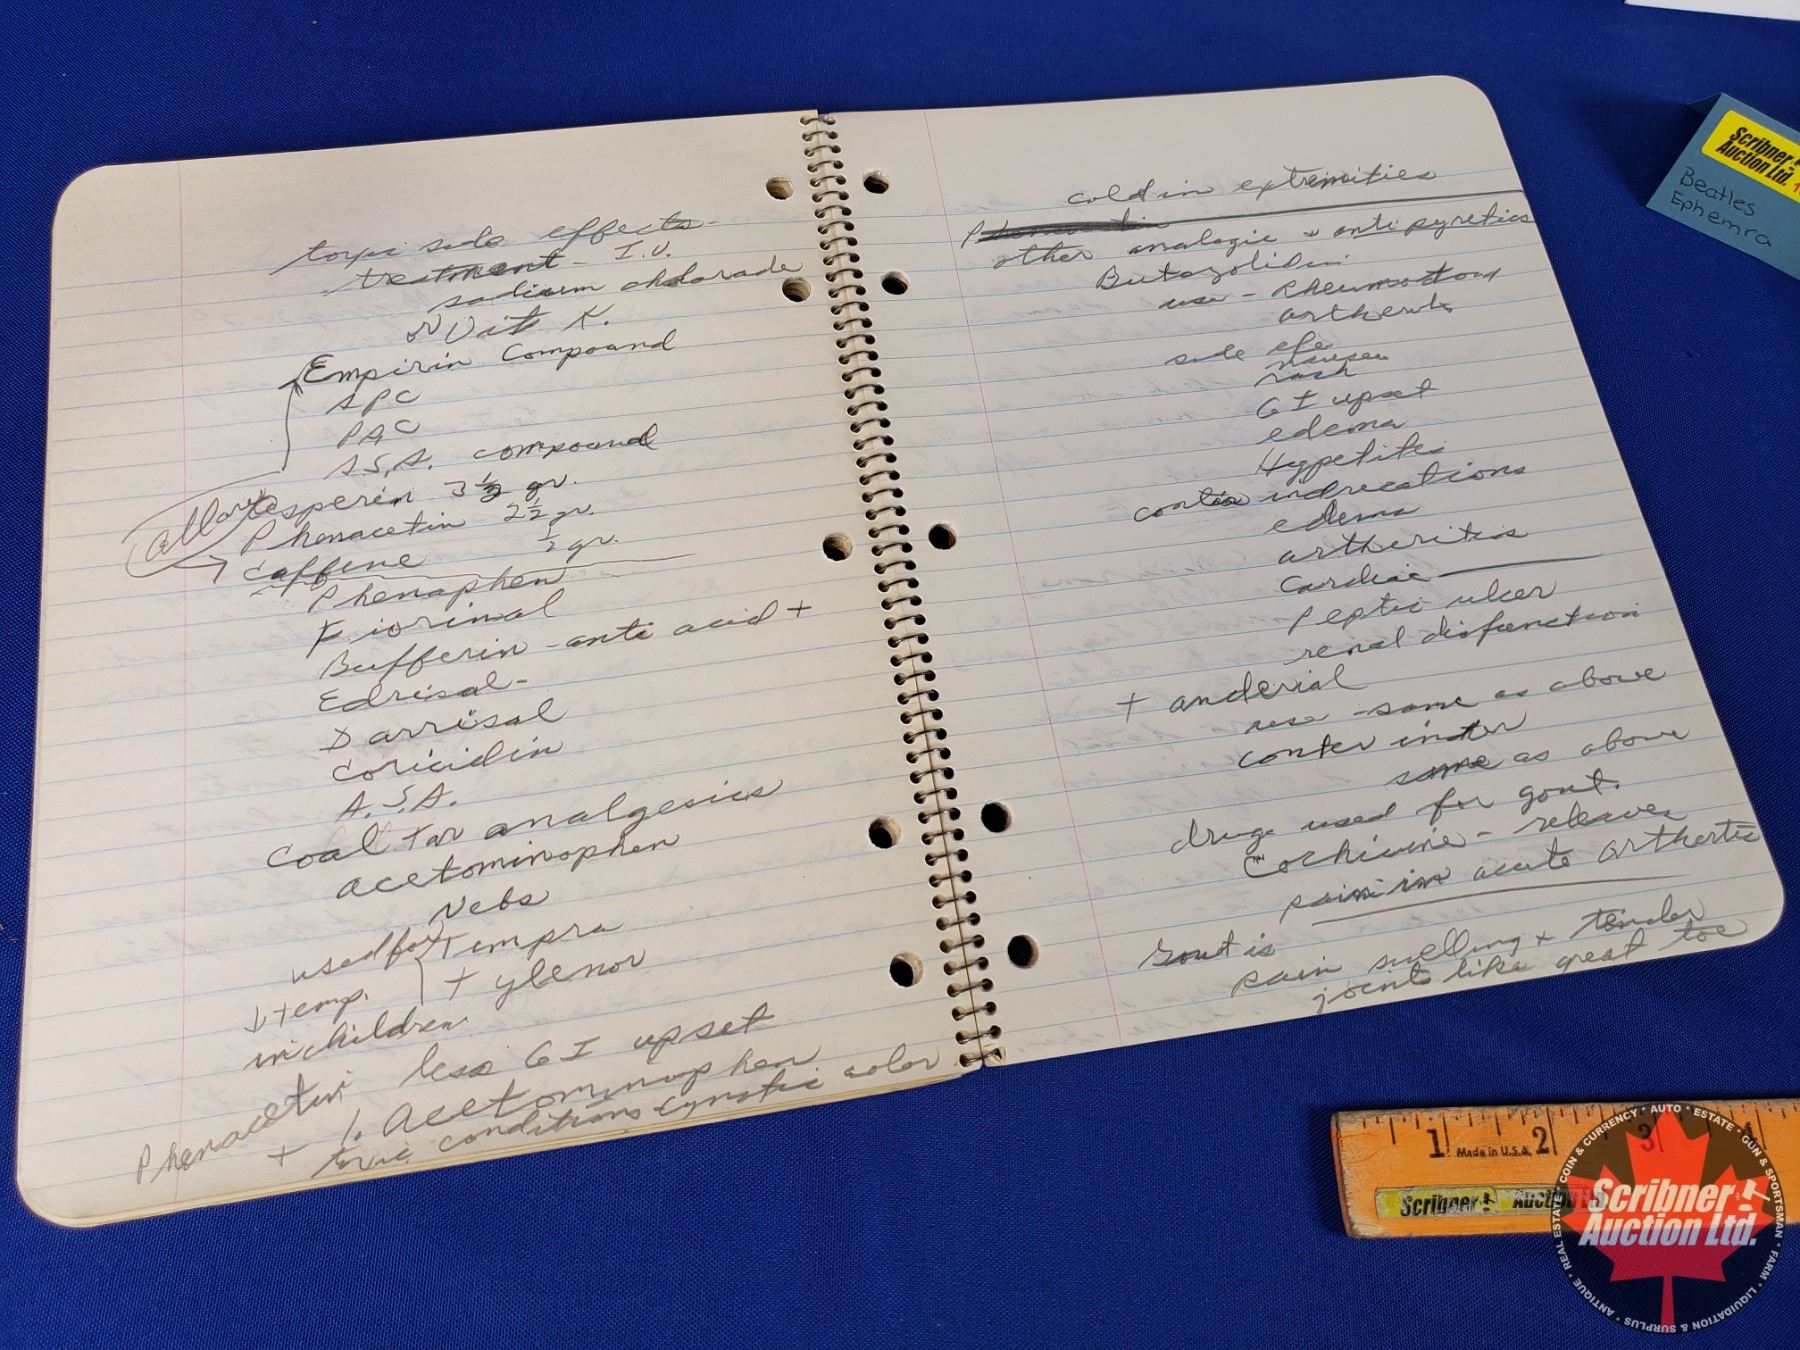 toxic side effects
treatment - I.V.
sodium
or Vit K.
Empirin Compound
APC
PAC
A.S.A. compound
all
asperin 3 1/2 gr.
Phenacetin 2 1/2 gr.
caffine 1/2 gr.
Phenaphen
Fiorinal
Bufferin - anti acid +
Edrisal -
Darrisal
Coricidin
A.S.A.
Coal Tar analgesics
acetominophen
Nebs
used for Tempra
↓ temp. + ylenor
in children
Phenacetin less GI upset
+ 1. Acetominophen
toxic conditions cynotic color
cold in extremities
other analogic + antipyretics
Butazolidin
use - Rheumatoid
artherits
side efe
nausea
rash
GI upset
edema
Hypetites
contra indrecations
edema
artheritis
Cardiac
Peptic ulcer
renal disfunction
+ anderial
use - same as above
conter inter
same as above
drugs used for gout.
Cochicine - releaves
pain in acute arthertis
Gout is
pain swelling + tender
joints like great toe
Scribner
Auction Ltd.
Beatles
Ephemra
1 2 3 4
Made in U.S.A.
Scribner Auction Ltd
COIN & CURRENCY • AUTO • ESTATE • GUN & SPORTSMAN • FARM • LIQUIDATION & SURPLUS • ANTIQUE • REAL ESTATE
Scribner
Auction Ltd.